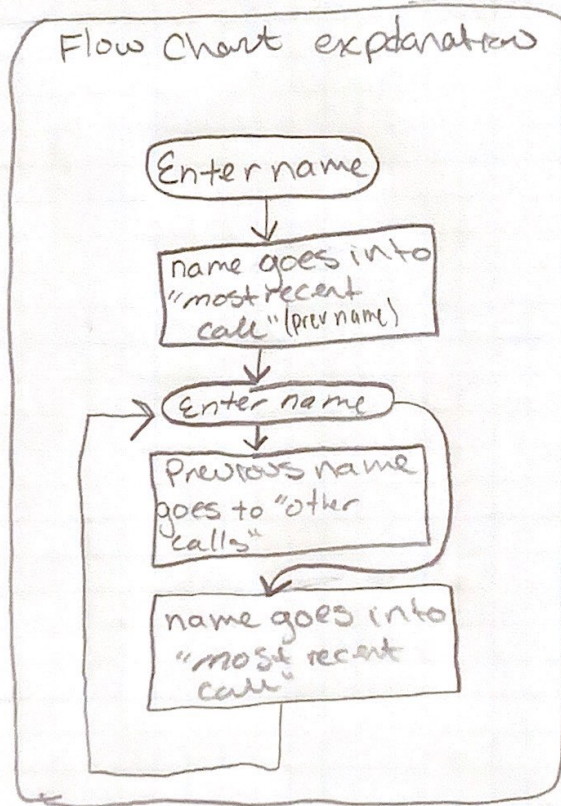 Flow Chart expdanation
Enter name
name goes into
"most recent
call" (prev name)
Enter name
Previous name
goes to "other
calls"
name goes into
"most recent
call"